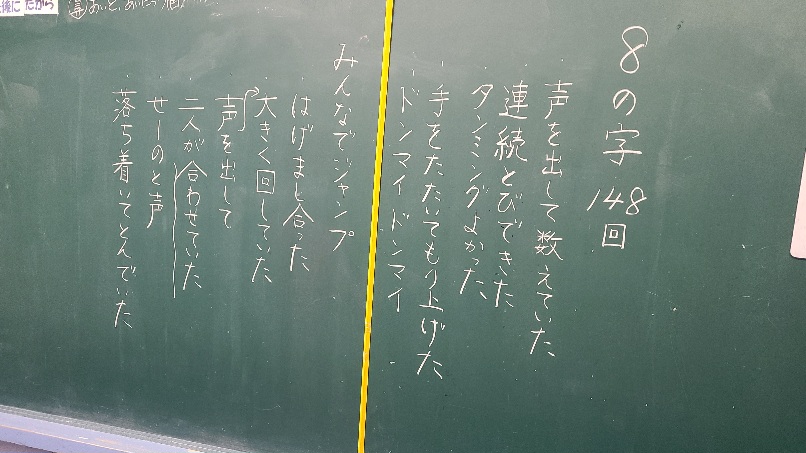 8の字 148回
・声を出して数えていた
・連続とびできた
・タンミングよかった
・手をたたいてもり上げた
・ドンマイ ドンマイ
みんなでジャンプ
・はげまし合った
・大きく回していた
・声を出して
・二人が合わせていた
せーのと声
・落ち着いてとんでいた
後に だから